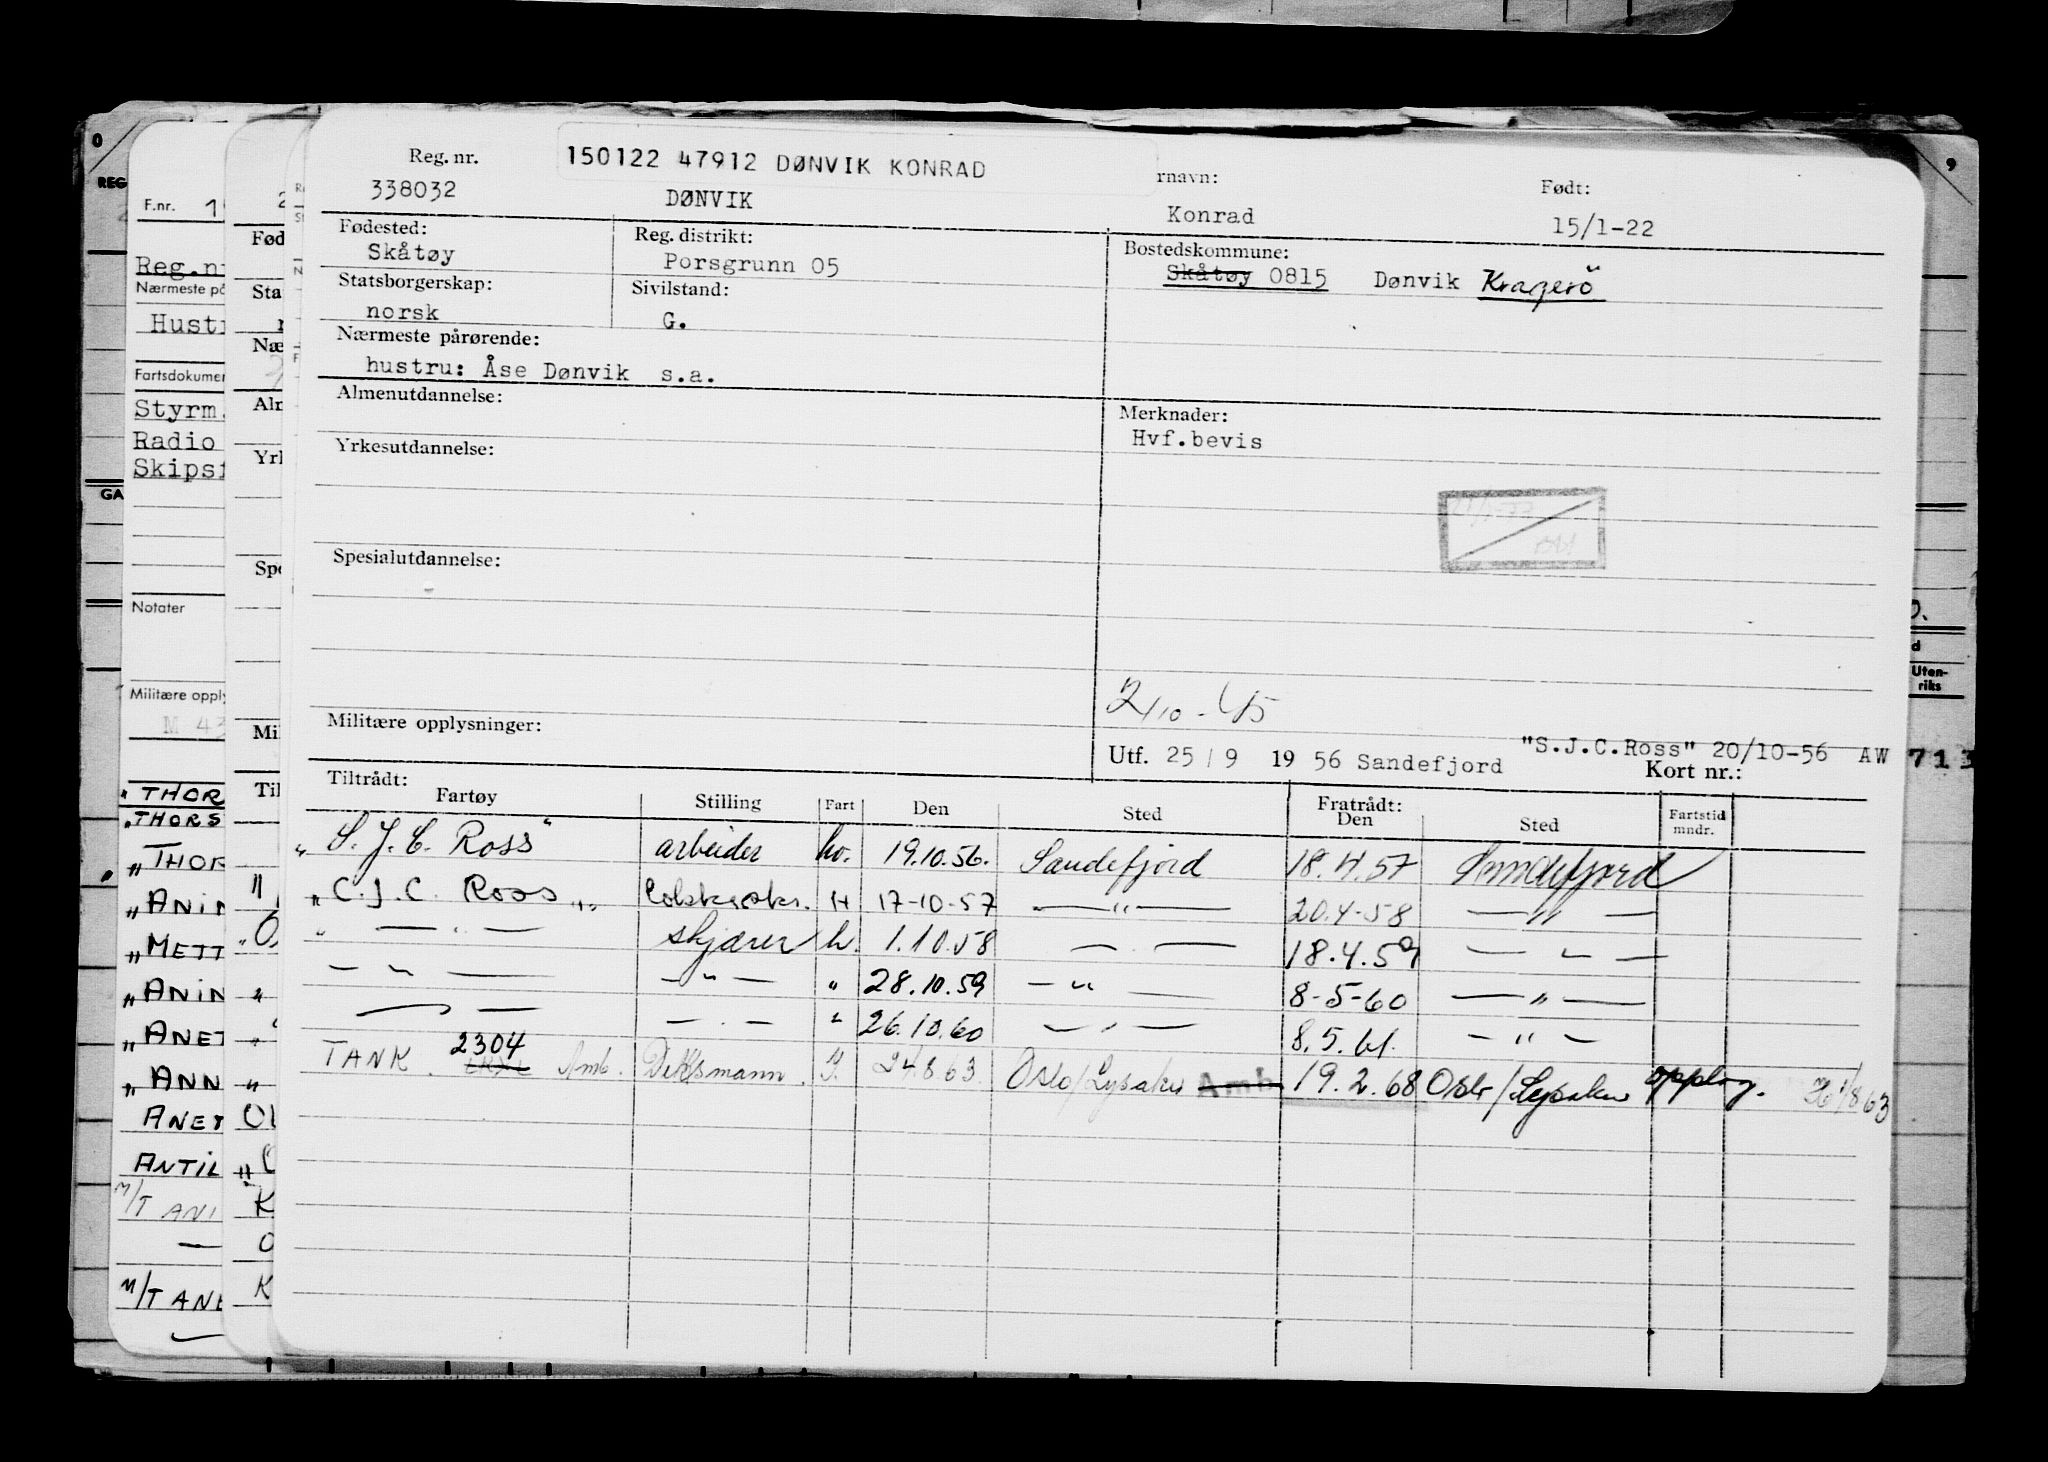 Reg. nr.
150122 47912 DØNVIK KONRAD
rnavn:
Født:
338032
DØNVIK
Konrad
15/1-22
Fødested:
Skåtøy
Reg. distrikt:
Porsgrunn 05
Bostedskommune:
Skåtøy 0815 Dønvik Kragerö
Statsborgerskap:
norsk
Sivilstand:
G.
Nærmeste pårørende:
hustru: Åse Dønvik s.a.
Almenutdannelse:
Merknader:
Hvf.bevis
Yrkesutdannelse:
Spesialutdannelse:
2/10-45
Militære opplysninger:
Utf. 25 / 9 19 56 Sandefjord
"S.J.C.Ross" 20/10-56 AW
Kort nr.:
713
Tiltrådt:
Fartøy Stilling Fart Den Sted
Fratrådt:
Den Sted
Fartstid
mndr.
"S. J. C. Ross" arbeider hv. 19.10.56. Sandefjord 18.4.57 Sandefjord
"C.J.C. Ross" H 17-10-57 — " — 20.4-58 — " —
" — " — skjærer h. 1.10.58 — " — 18.4.59 — " —
— " — — " — " 28.10.59 — " — 8-5-60 — " —
— " — — " — " 26.10.60 — " — 8.5.61. — " —
TANK 2304 Amb. Dekksmann. 24.8.63. Oslo/Lysaker Amb 19.2.68 Oslo/Lysaker opplag.
F.nr.
Reg.n
Nærmeste på
Hust
Fartsdokumen
Styrm.
Radio
Skipsf
Notater
Militære opply
M 43
"THOR
"THORS
"THOR
"ANIN
"METT
"ANIN
"ANET
"ANN
ANET
ANTIL
M/T ANI
M/T ANE
Fød
Sta
Næ
Alm
Yrk
Spe
Mil
Til
REG
GA
0
9
d
Uten-
riks